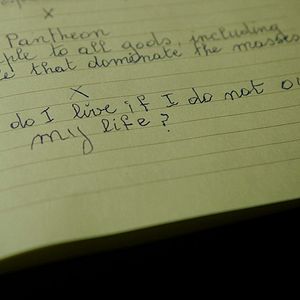 x
Pantheon
ple to all gods, including
e that dominate the masses
X
do I live if I do not
my life?